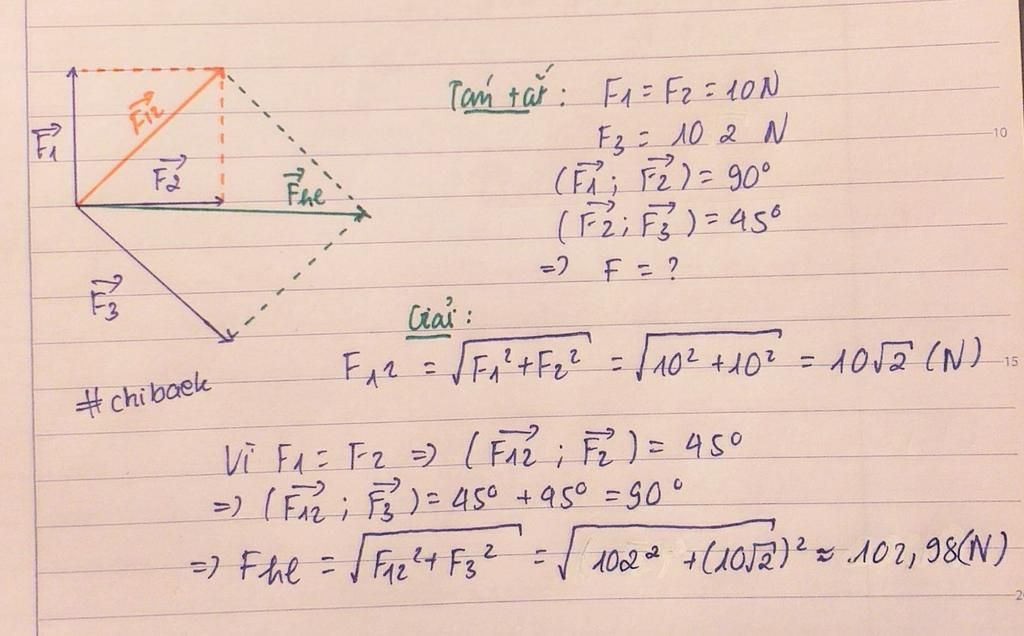 F₁
F₁₂
F₂
Fhl
F₃
#chibaek
Tóm tắt: F₁ = F₂ = 10N
F₃ = 10 2 N
(F₁; F₂) = 90°
(F₂; F₃) = 45°
=> F = ?
Giải:
F₁₂ = √F₁² + F₂² = √10² + 10² = 10√2 (N)
Vì F₁ = F₂ => (F₁₂; F₂) = 45°
=> (F₁₂; F₃) = 45° + 45° = 90°
=> Fhl = √F₁₂² + F₃² = √102² + (10√2)² ≈ 102,98(N)
10
15